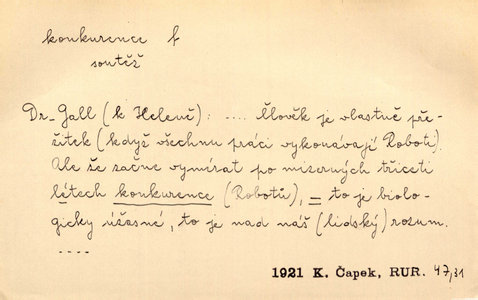 konkurence f
soutěž
Dr. Gall (k Heleně): .... Člověk je vlastně pře-
žitek (když všechnu práci vykonávají Roboti).
Ale že začne vymírat po mizerných třiceti
létech konkurence (Robotů), = to je biolo-
gicky úžasné, to je nad náš (lidský) rozum.
....
1921 K. Čapek, RUR. 47,31